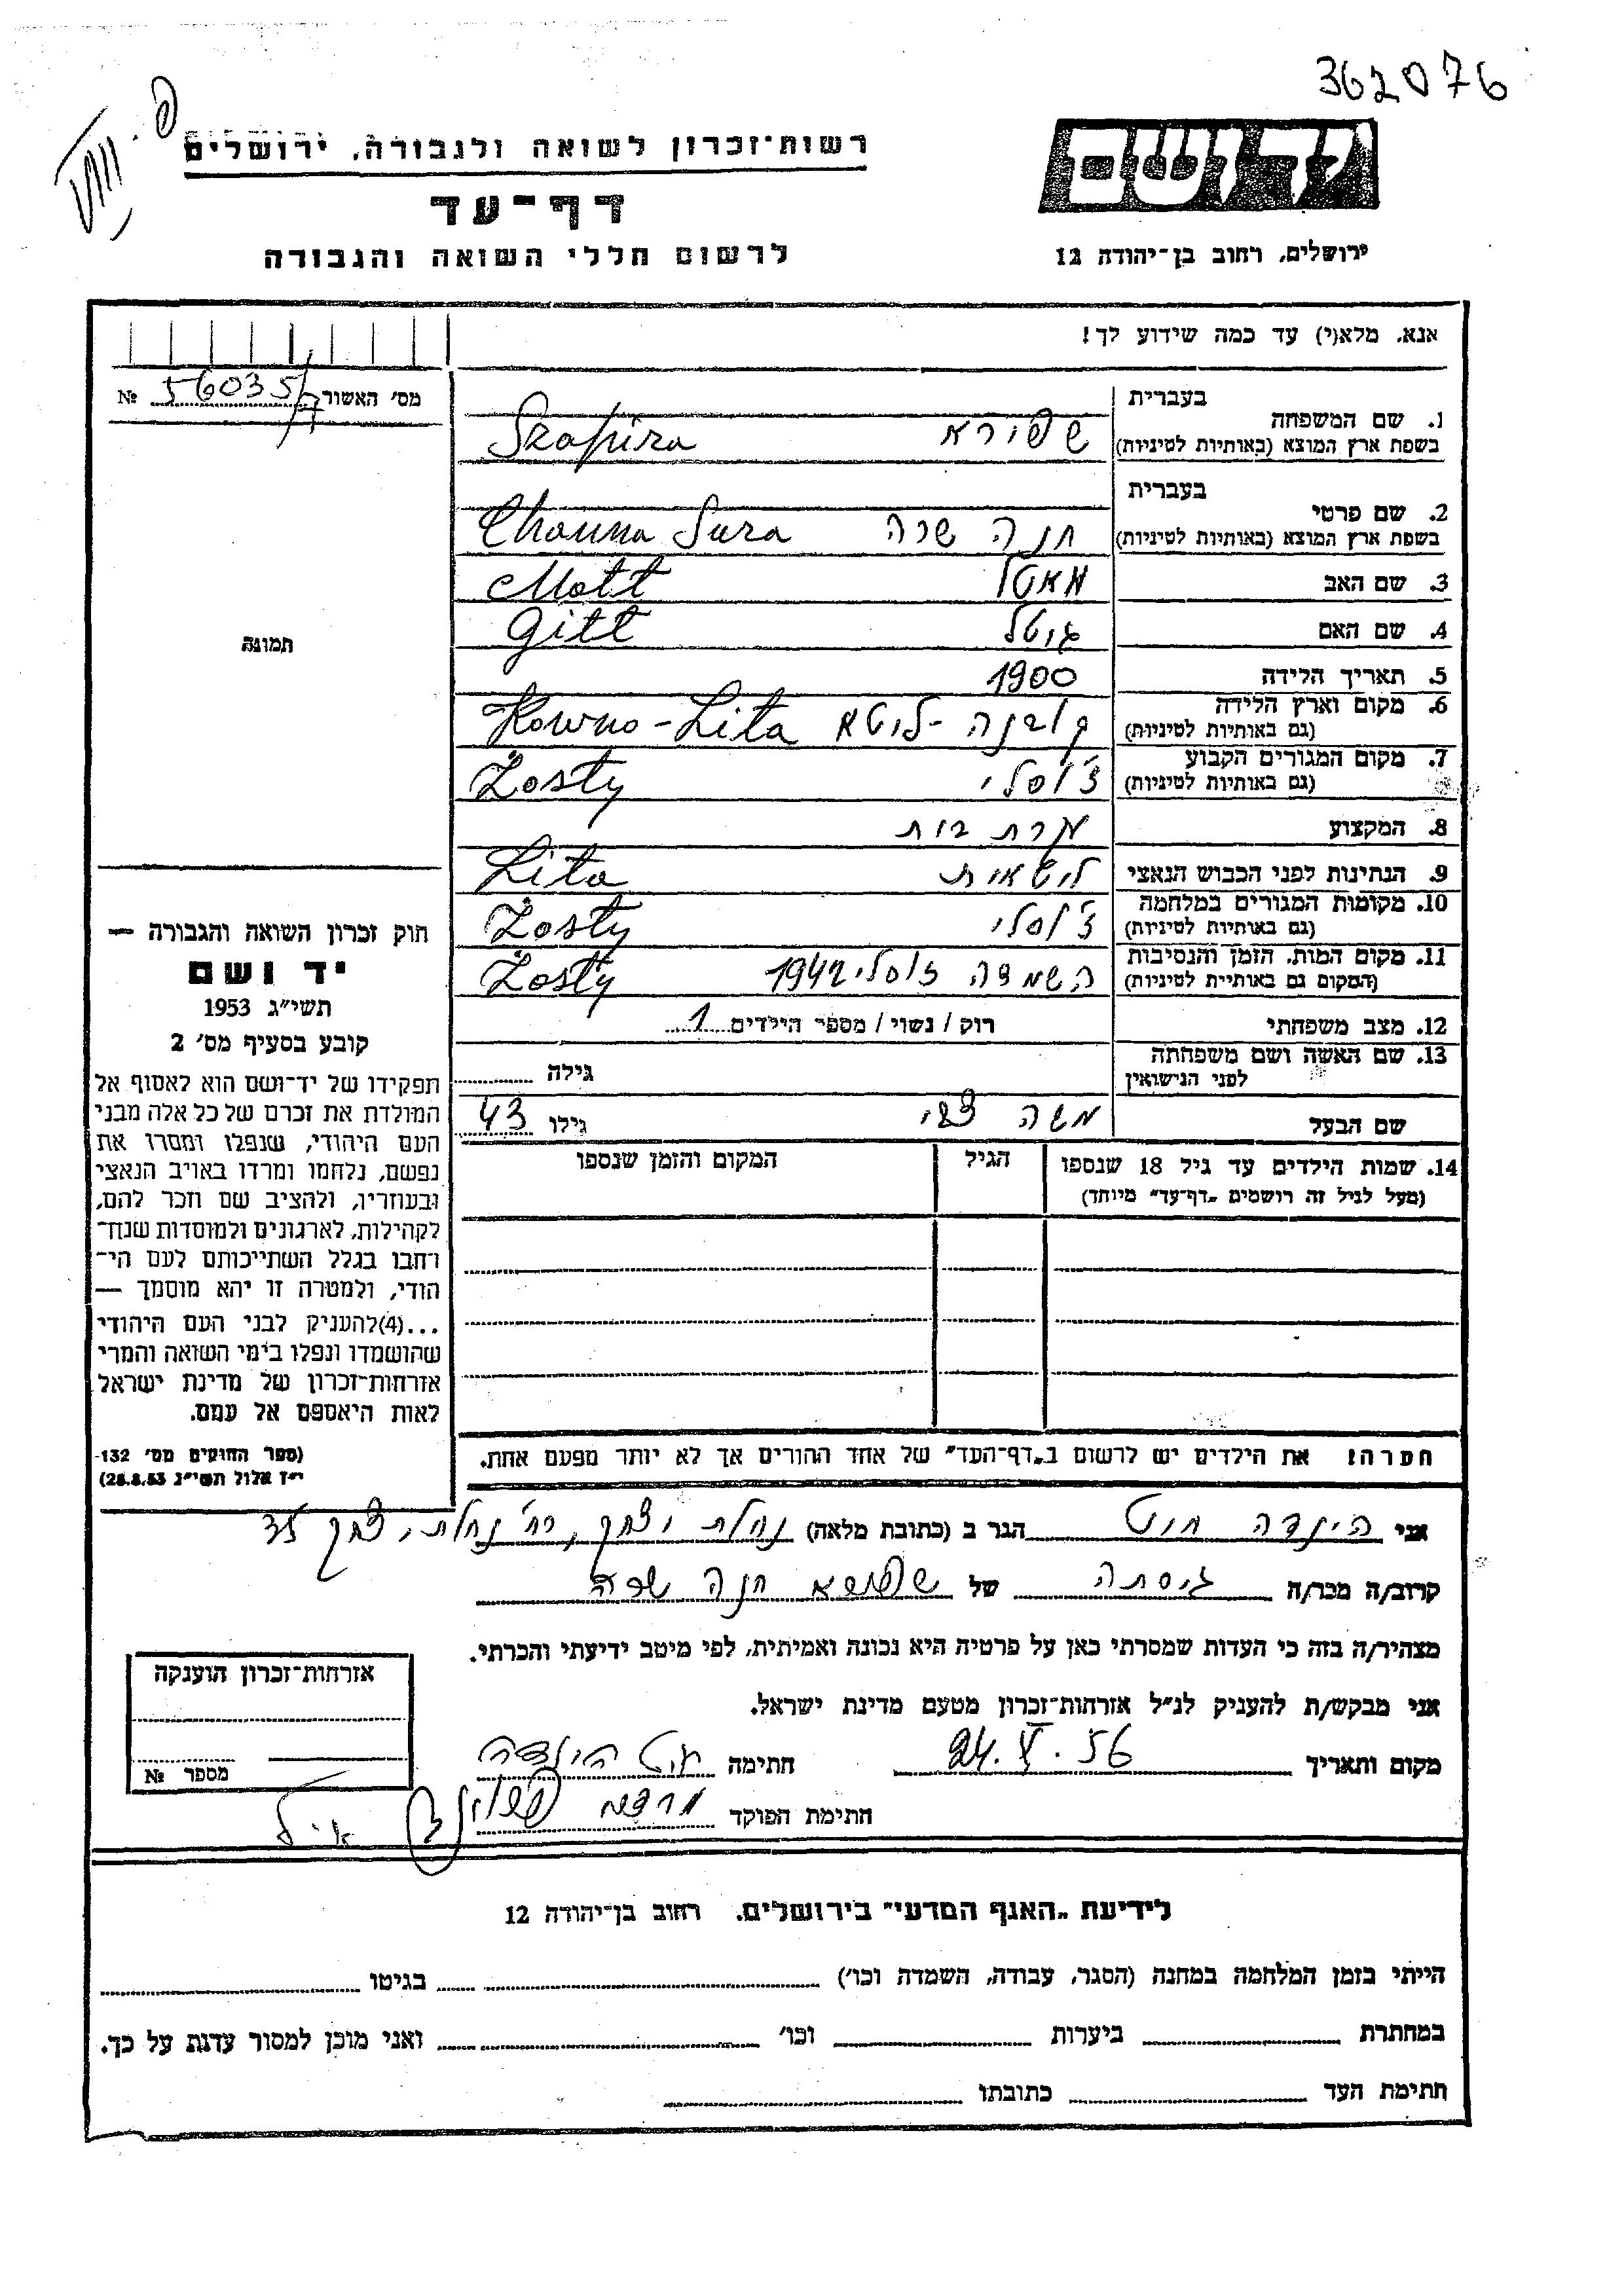 362076
רשות־זכרון לשואה ולגבורה, ירושלים
יד ושם
דף־עד
לרשום חללי השואה והגבורה
ירושלים, רחוב בן־יהודה 12
אנא, מלא(י) עד כמה שידוע לך!
מס׳ האשור 56035/7 №
בעברית
1. שם המשפחה
בשפת ארץ המוצא (באותיות לטיניות) שפירא Szapira
בעברית
2. שם פרטי
בשפת ארץ המוצא (באותיות לטיניות) חנה שרה Channa Sura
3. שם האב מאטל Motl
4. שם האם גיטל Gitl
5. תאריך הלידה 1900
6. מקום וארץ הלידה
(גם באותיות לטיניות) קובנה - ליטא Kowno - Lita
7. מקום המגורים הקבוע
(גם באותיות לטיניות) ז׳וסלי Żosty
8. המקצוע עקרת בית
9. הנתינות לפני הכבוש הנאצי ליטאית Lita
10. מקומות המגורים במלחמה
(גם באותיות לטיניות) ז׳וסלי Żosty
11. מקום המות, הזמן והנסיבות
(המקום גם באותיות לטיניות) השמדה ז׳וסלי 1942 Żosty
12. מצב משפחתי רוק / נשוי / מספר הילדים 1
13. שם האשה ושם משפחתה
לפני הנישואין גילה
שם הבעל משה צבי גילו 43
14. שמות הילדים עד גיל 18 שנספו
(מעל לגיל זה רושמים „דף־עד״ מיוחד)
הגיל
המקום והזמן שנספו
תמונה
חוק זכרון השואה והגבורה —
יד ושם
תשי״ג 1953
קובע בסעיף מס׳ 2
תפקידו של יד־ושם הוא לאסוף אל
המולדת את זכרם של כל אלה מבני
העם היהודי, שנפלו ומסרו את
נפשם, נלחמו ומרדו באויב הנאצי
ובעוזריו, ולהציב שם וזכר להם,
לקהילות, לארגונים ולמוסדות שנח־
רחבו בגלל השתייכותם לעם הי־
הודי, ולמטרה זו יהא מוסמך —
...(4)להעניק לבני העם היהודי
שהושמדו ונפלו בימי השואה והמרי
אזרחות־זכרון של מדינת ישראל
לאות היאספם אל עמם.
(ספר החוקים מס׳ 132-
י״ז אלול תשי״ג 28.8.53)
הערה! את הילדים יש לרשום ב„דף־העד״ של אחד ההורים אך לא יותר מפעם אחת.
אני הינדה חיט הגר ב (כתובת מלאה) נחלת יצחק, רח׳ נחלת יצחק
קרוב/ה מכר/ה גיסתה של שפירא חנה שרה
מצהיר/ה בזה כי העדות שמסרתי כאן על פרטיה היא נכונה ואמיתית, לפי מיטב ידיעתי והכרתי.
אני מבקש/ת להעניק לנ״ל אזרחות־זכרון מטעם מדינת ישראל.
מקום ותאריך 24. V. 56 חתימה חיט הינדה
חתימת הפוקד
אזרחות־זכרון הוענקה
מספר №
לידיעת „האגף המדעי״ בירושלים, רחוב בן־יהודה 12
הייתי בזמן המלחמה במחנה (הסגר, עבודה, השמדה וכו׳) בגיטו
במחתרת ביערות וכו׳ ואני מוכן למסור עדות על כך.
חתימת העד כתובתו